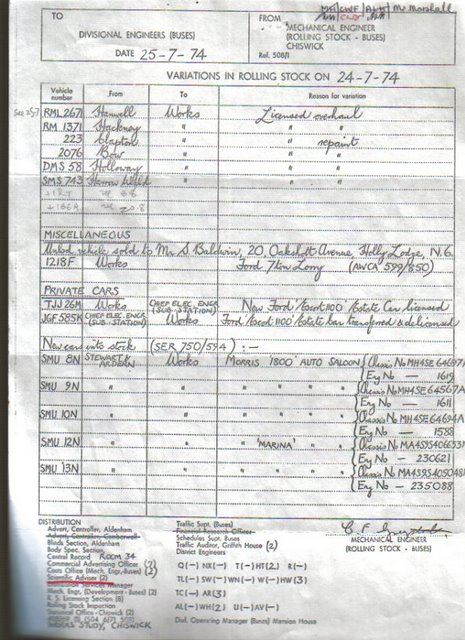 MH/CWF/ALK/ Mr Marshall
TO
DIVISIONAL ENGINEERS (BUSES)
DATE 25-7-74
FROM
MECHANICAL ENGINEER
(ROLLING STOCK - BUSES)
CHISWICK
Ref. 508/1
VARIATIONS IN ROLLING STOCK ON 24-7-74
Vehicle number From To Reason for variation
See 25/7 RML 2671 Hanwell Works Licensed overhaul
RM 1371 Hackney " " "
223 Clapton " " repaint
2076 Bow " " "
DMS 58 Holloway " " "
SMS 743 Harrow Weald " " "
MISCELLANEOUS
vehicle sold to Mr S. Baldwin, 20, Oakshott Avenue, Holly Lodge, N.6
1218F Works Ford 7 ton Lorry (AWCA 599/850)
PRIVATE CARS
TJJ 26M Works CHIEF ELEC. ENGR (SUB-STATION) New Ford Escort 1100 Estate Car licensed
JGF 585K CHIEF ELEC. ENGR. (SUB-STATION) Works Ford Escort 1100 Estate car transferred & delicensed
New cars into stock (SER 750/594) :-
SMU 8N STEWART & ARDERN Works MORRIS '1800' AUTO SALOON Chassis No MH4SE 64697A
Eng No — 1619
SMU 9N " " " " " " Chassis No MH4SE 64567A
Eng No — 1611
SMU 10N " " " " " " Chassis No MH4SE 64694A
Eng No — 1588
SMU 12N " " " 'MARINA' " " Chassis No
Eng No — 230621
SMU 13N " " " " " " Chassis No
Eng No — 235088
MECHANICAL ENGINEER
(ROLLING STOCK - BUSES)
DISTRIBUTION
Advert. Controller, Aldenham
Advert. Controller, Camberwell
Blinds Section, Aldenham
Body Spec. Section
Central Record ROOM 34
Commercial Advertising Officer (2)
Costs Office (Mech. Engr-Buses) (2)
Scientific Adviser (2)
Services Manager
Mech. Engr, (Development - Buses) (2)
R. S. Licensing Section (8)
Rolling Stock Inspection
Technical Office - Chiswick (2)
WORKS STUDY, CHISWICK
Traffic Supt. (Buses)
Financial Research Officer
Schedules Supt. Buses
Traffic Auditor, Griffith House (2)
District Engineers
Q(—) NX(—) T(—) HT(2) R(—)
TL(—) SW(—) WN(—) W(—) HW(3)
TC(—) AR(3)
AL(—) WH(2) U(—) AV(—)
Divl. Operating Manager (Buses) Mansion House